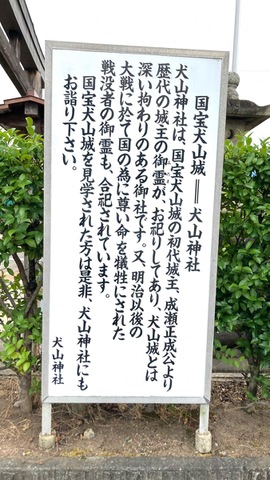 国宝犬山城 ＝ 犬山神社
犬山神社は、国宝犬山城の初代城主、成瀬正成公より
歴代の城主の御霊が、お祀りしてあり、犬山城とは
深い拘わりのある御社です。又、明治以後の
大戦に於て国の為に尊い命を犠牲にされた
戦没者の御霊も、合祀されています。
国宝犬山城を見学された方は是非、犬山神社にも
お詣り下さい。
犬山神社